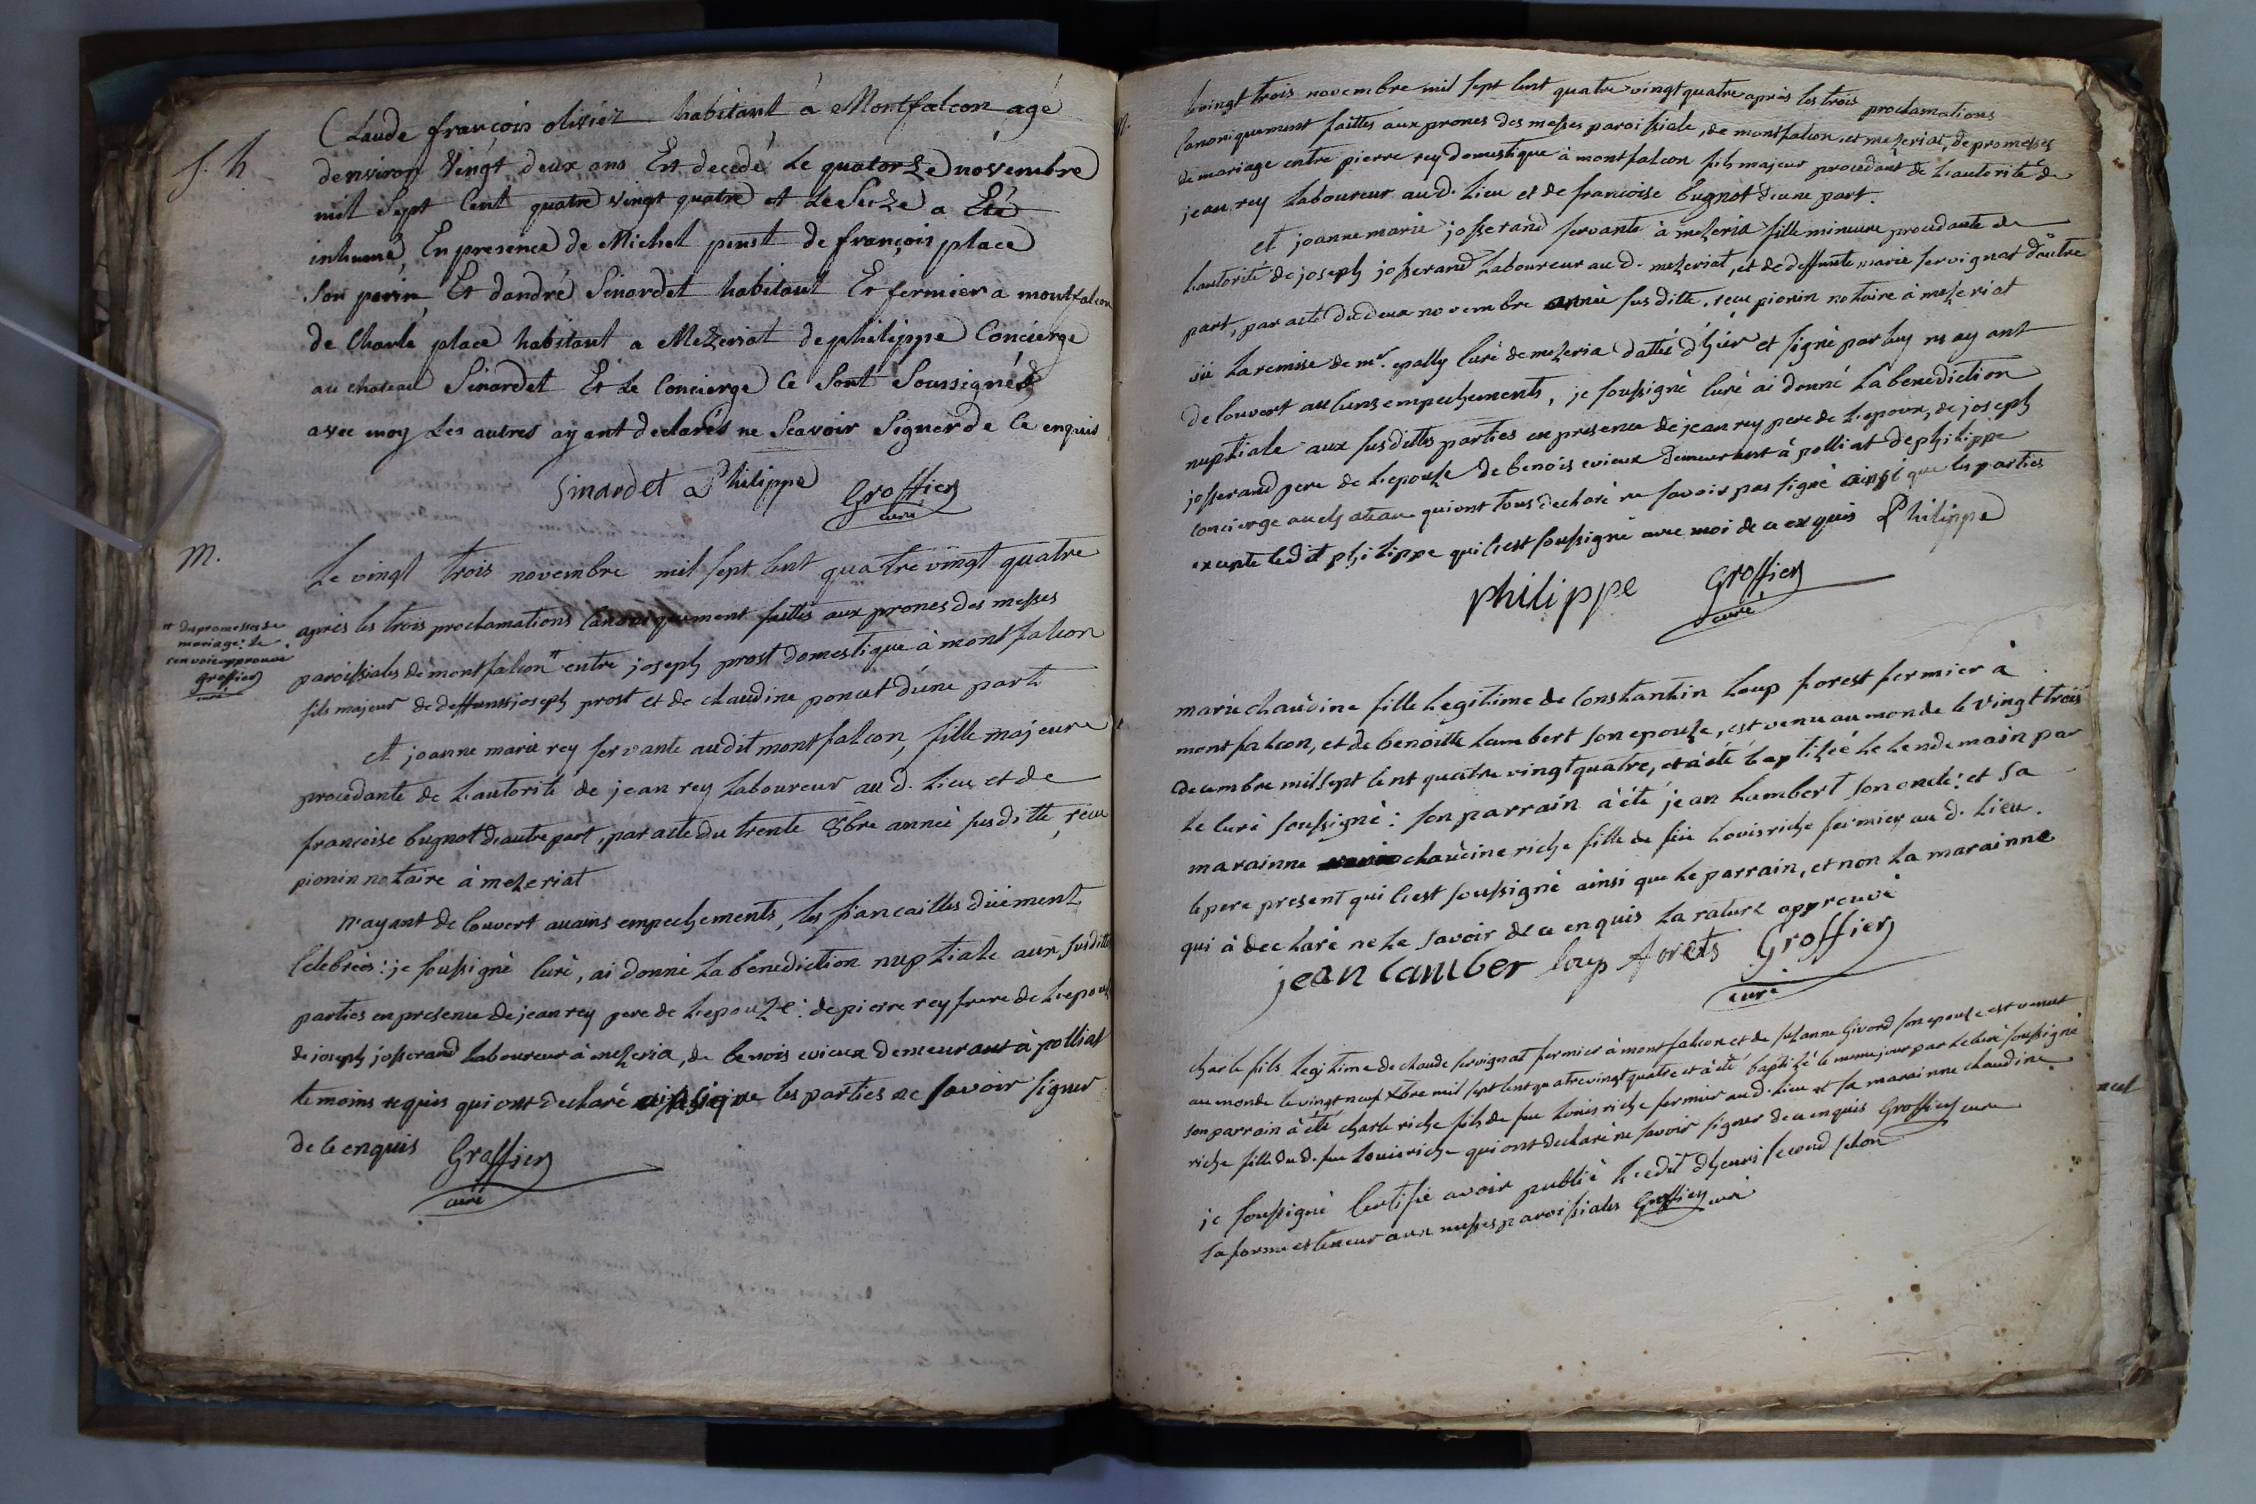 S. h.
Claude françois olivier habitant à Montfalcon agé
denviron Vingt deux ans Est decedé Le quatorze novembre
mil Sept Cent quatre vingt quatre et Le Seize a Eté
inhumé, En presence de Michel de françois place
Son Et dandré Sinardet habitant Et fermier a montfalcon
de Charle place habitant a Mezeriat de philippe Concierge
au chateau Sinardet Et Le Concierge Ce Sont Soussignés
avec moy Les autres ayant declarés ne Scavoir Signer de Ce enquis
Sinardet Philippe Groffier
curé
M.
Le vingt trois novembre mil sept cent quatre vingt quatre
après les trois proclamations canoniquement faittes aux prones des messes
paroissiales de montfalcon # entre joseph prost domestique à montfalcon
fils majeur de deffunt joseph prost et de claudine poncet d'une part
# des promesses de
mariage: le
renvoi approuvé
Groffier
curé
et joanne marie rey servante audit montfalcon, fille majeure
procedante de l'autorité de jean rey laboureur au d. lieu et de
francoise bugnot d'autre part, par acte du trente 8bre année susditte, recu
pionin notaire à mezeriat
n'ayant decouvert aucuns empechements, les fiancailles düement
celebrées: je soussigné curé, ai donné la benediction nuptiale aux susdittes
parties en presence de jean rey pere de l'epouze: de pierre rey frere de l'epouse
de joseph josserand laboureur à mezeria, de benois evieux demeurant à polliat
temoins requis qui ont declaré les parties ne savoir signer
de ce enquis Groffier
curé
le vingt trois novembre mil sept cent quatre vingt quatre après les trois proclamations
canoniquement faittes aux prones des messes paroissiale, de montfalcon, et mezeriat, de promesses
de mariage entre pierre rey domestique à montfalcon fils majeur procedant de l'autorité de
jean rey laboureur au d. lieu et de francoise bugnot d'une part.
et joanne marie josserand servante à mezeria fille mineure procedante de
l'autorité de joseph josserand laboureur au d. mezeriat, et de deffunte marie servignat d'autre
part, par acte du deux novembre année susditte, recu pionin notaire à mezeriat
vü la remise de mr. curé de mezeria dattée d'hier et signé par luy ny ayant
decouvert aucuns empechements, je soussigné curé ai donné la benediction
nuptiale aux susdittes parties en presence de jean rey pere de l'epoux, de joseph
josserand pere de l'epouse de benois evieux demeurant à polliat de philippe
concierge au chateau qui ont tous declaré ne savoir pas signé ainsi que les parties
excepté ledit philippe qui c'est soussigné avec moi de ce exquis Philippe
philippe Groffier
curé
marie claudine fille legitime de Constantin loup forest fermier à
montfalcon, et de benoitte lambert son epouze, est venu au monde le vingt trois
decembre mil sept cent quatre vingt quatre, et à été baptisée le lendemain par
le curé soussigné: son parrain à été jean lambert son oncle: et sa
marainne claudine riche fille de feu louis riche fermier au d. lieu.
le pere present qui c'est soussigné ainsi que le parrain, et non la marainne
qui à declaré ne le savoir de ce enquis la rature approuvé
jean lamber loup forets Groffier
curé
charle fils legitime de claude servignat fermier à montfalcon et de suzanne givord son epouse est venut
au monde le vingt neuf Xbre mil sept cent quatre vingt quatre et à été baptisé le meme jour par le curé soussigné
son parrain à été charle riche fils de feu louis riche fermier au d. lieu et sa marainne claudine
riche fille du d. feu louis riche qui ont declaré ne savoir signer de ce enquis Groffier curé
je soussigné certifie avoir publié l'edit d'henri second selon
sa forme et teneur aux messes paroissiales Groffier curé